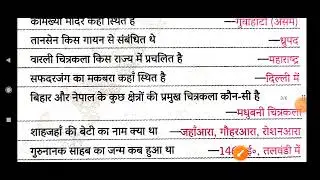 कामख्या मंदिर कहाँ स्थित है —गुवाहाटी (असम)
तानसेन किस गायन से संबंधित थे —ध्रुपद
वारली चित्रकला किस राज्य में प्रचलित है —महाराष्ट्र
सफदरजंग का मकबरा कहाँ स्थित है —दिल्ली में
बिहार और नेपाल के कुछ क्षेत्रों की प्रमुख चित्रकला कौन-सी है
—मधुबनी चित्रकला
शाहजहाँ की बेटी का नाम क्या था —जहाँआरा, गौहरआरा, रोशनआरा
गुरुनानक साहब का जन्म कब हुआ था ई०, तलवंडी में